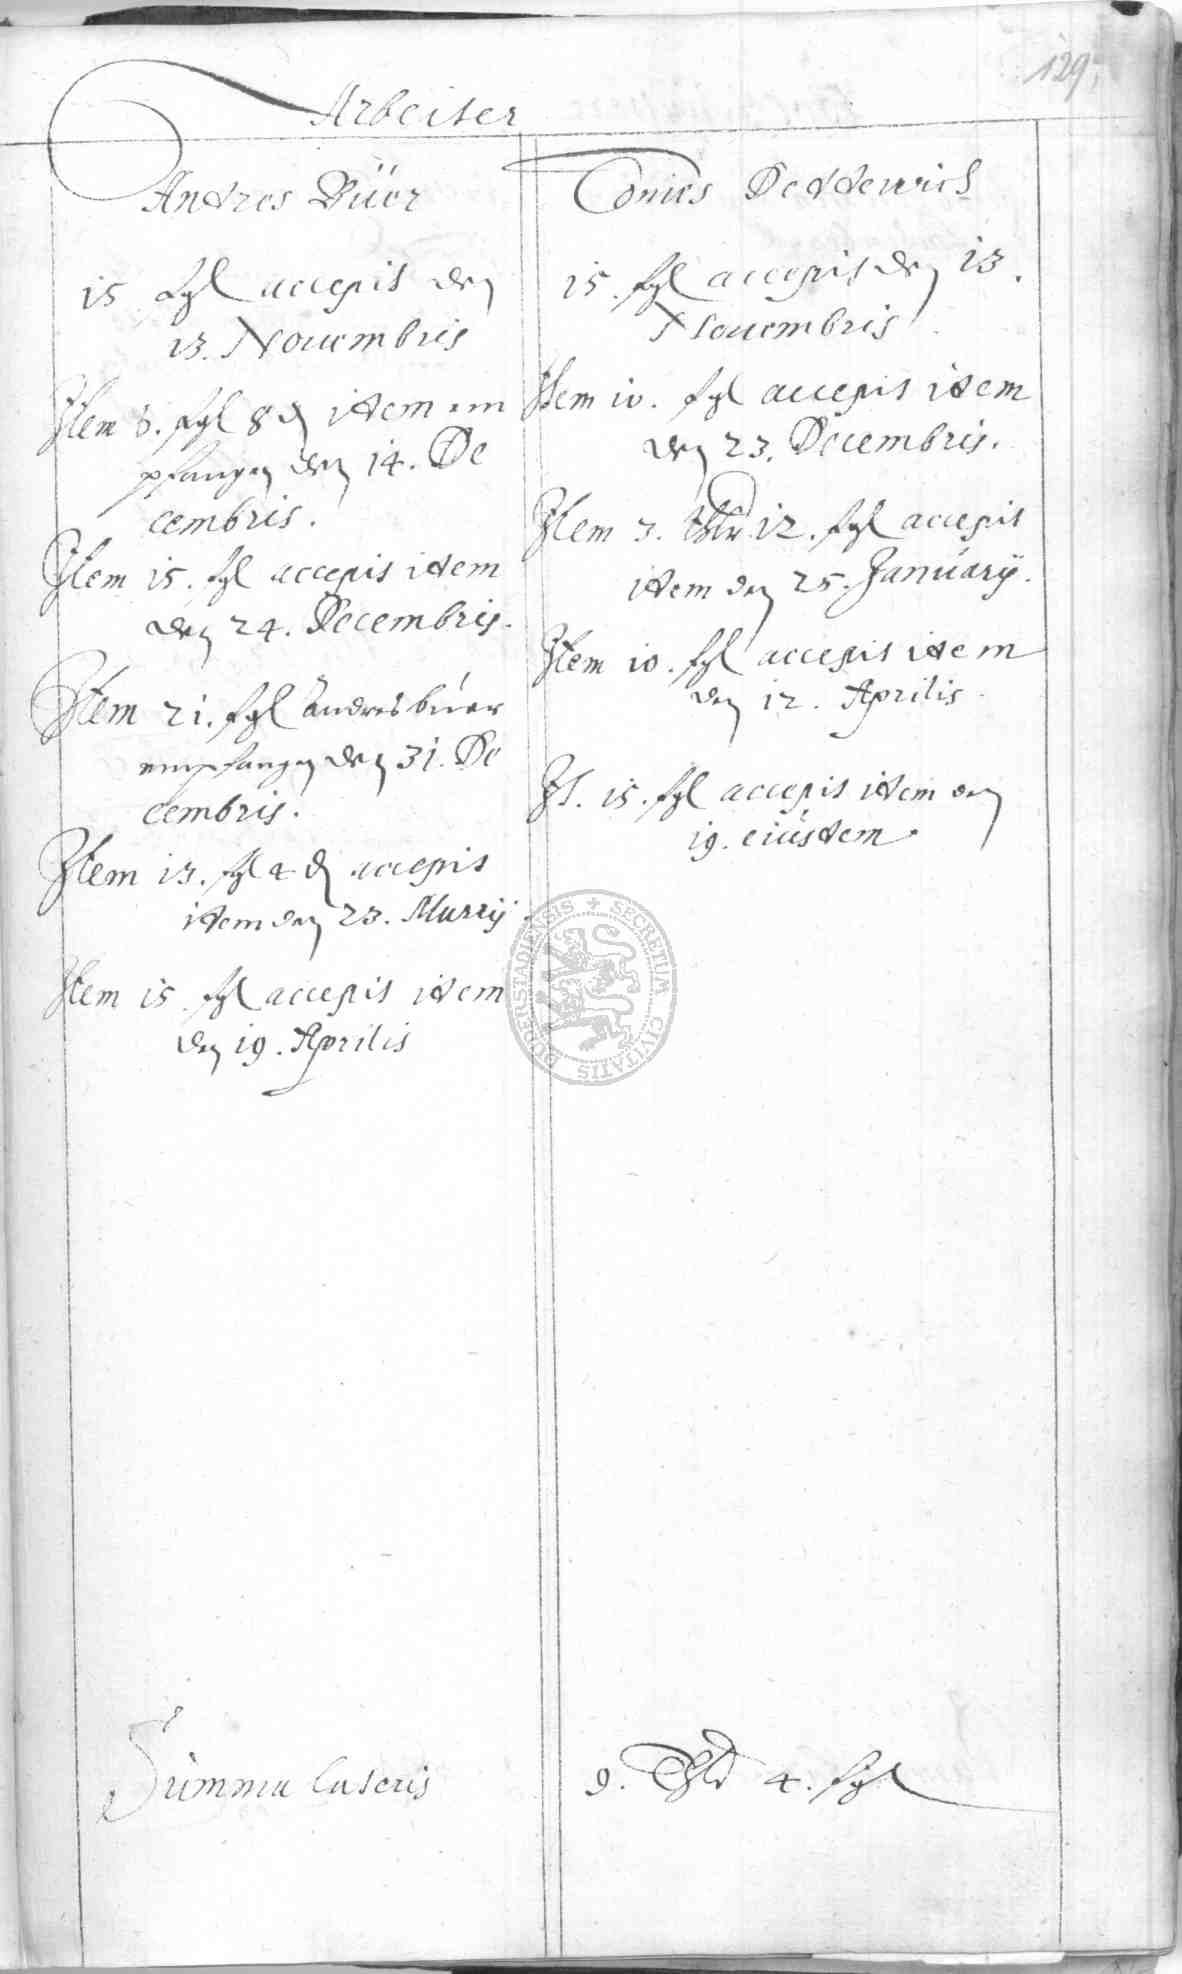 129.
Arbeiter
Andres Büer
15 ßgl accepit den
13. Nouembris
Item 8. ßgl 8 ₰ item em
pfangen den 14. De
cembris.
Item 15. ßgl accepit item
den 24. Decembris.
Item 21. ßgl Andres büer
empfangen den 31. De
cembris.
Item 13. ßgl 4 ₰ accepit
item den 23. Martij
Item 15 ßgl accepit item
den 19. Aprilis
Tonies Dettewich
15. ßgl accepit den 13.
Nouembris
Item 10. ßgl accepit item
den 23. Decembris.
Item 3. thlr 12. ßgl accepit
item den 25. Januarij.
Item 10. ßgl accepit item
den 12. Aprilis
It. 15. ßgl accepit item den
19. eiusdem.
Summa lateris 9. Thlr 4. ßgl
SECRETUM CIVITATIS DUDERSTADIENSIS